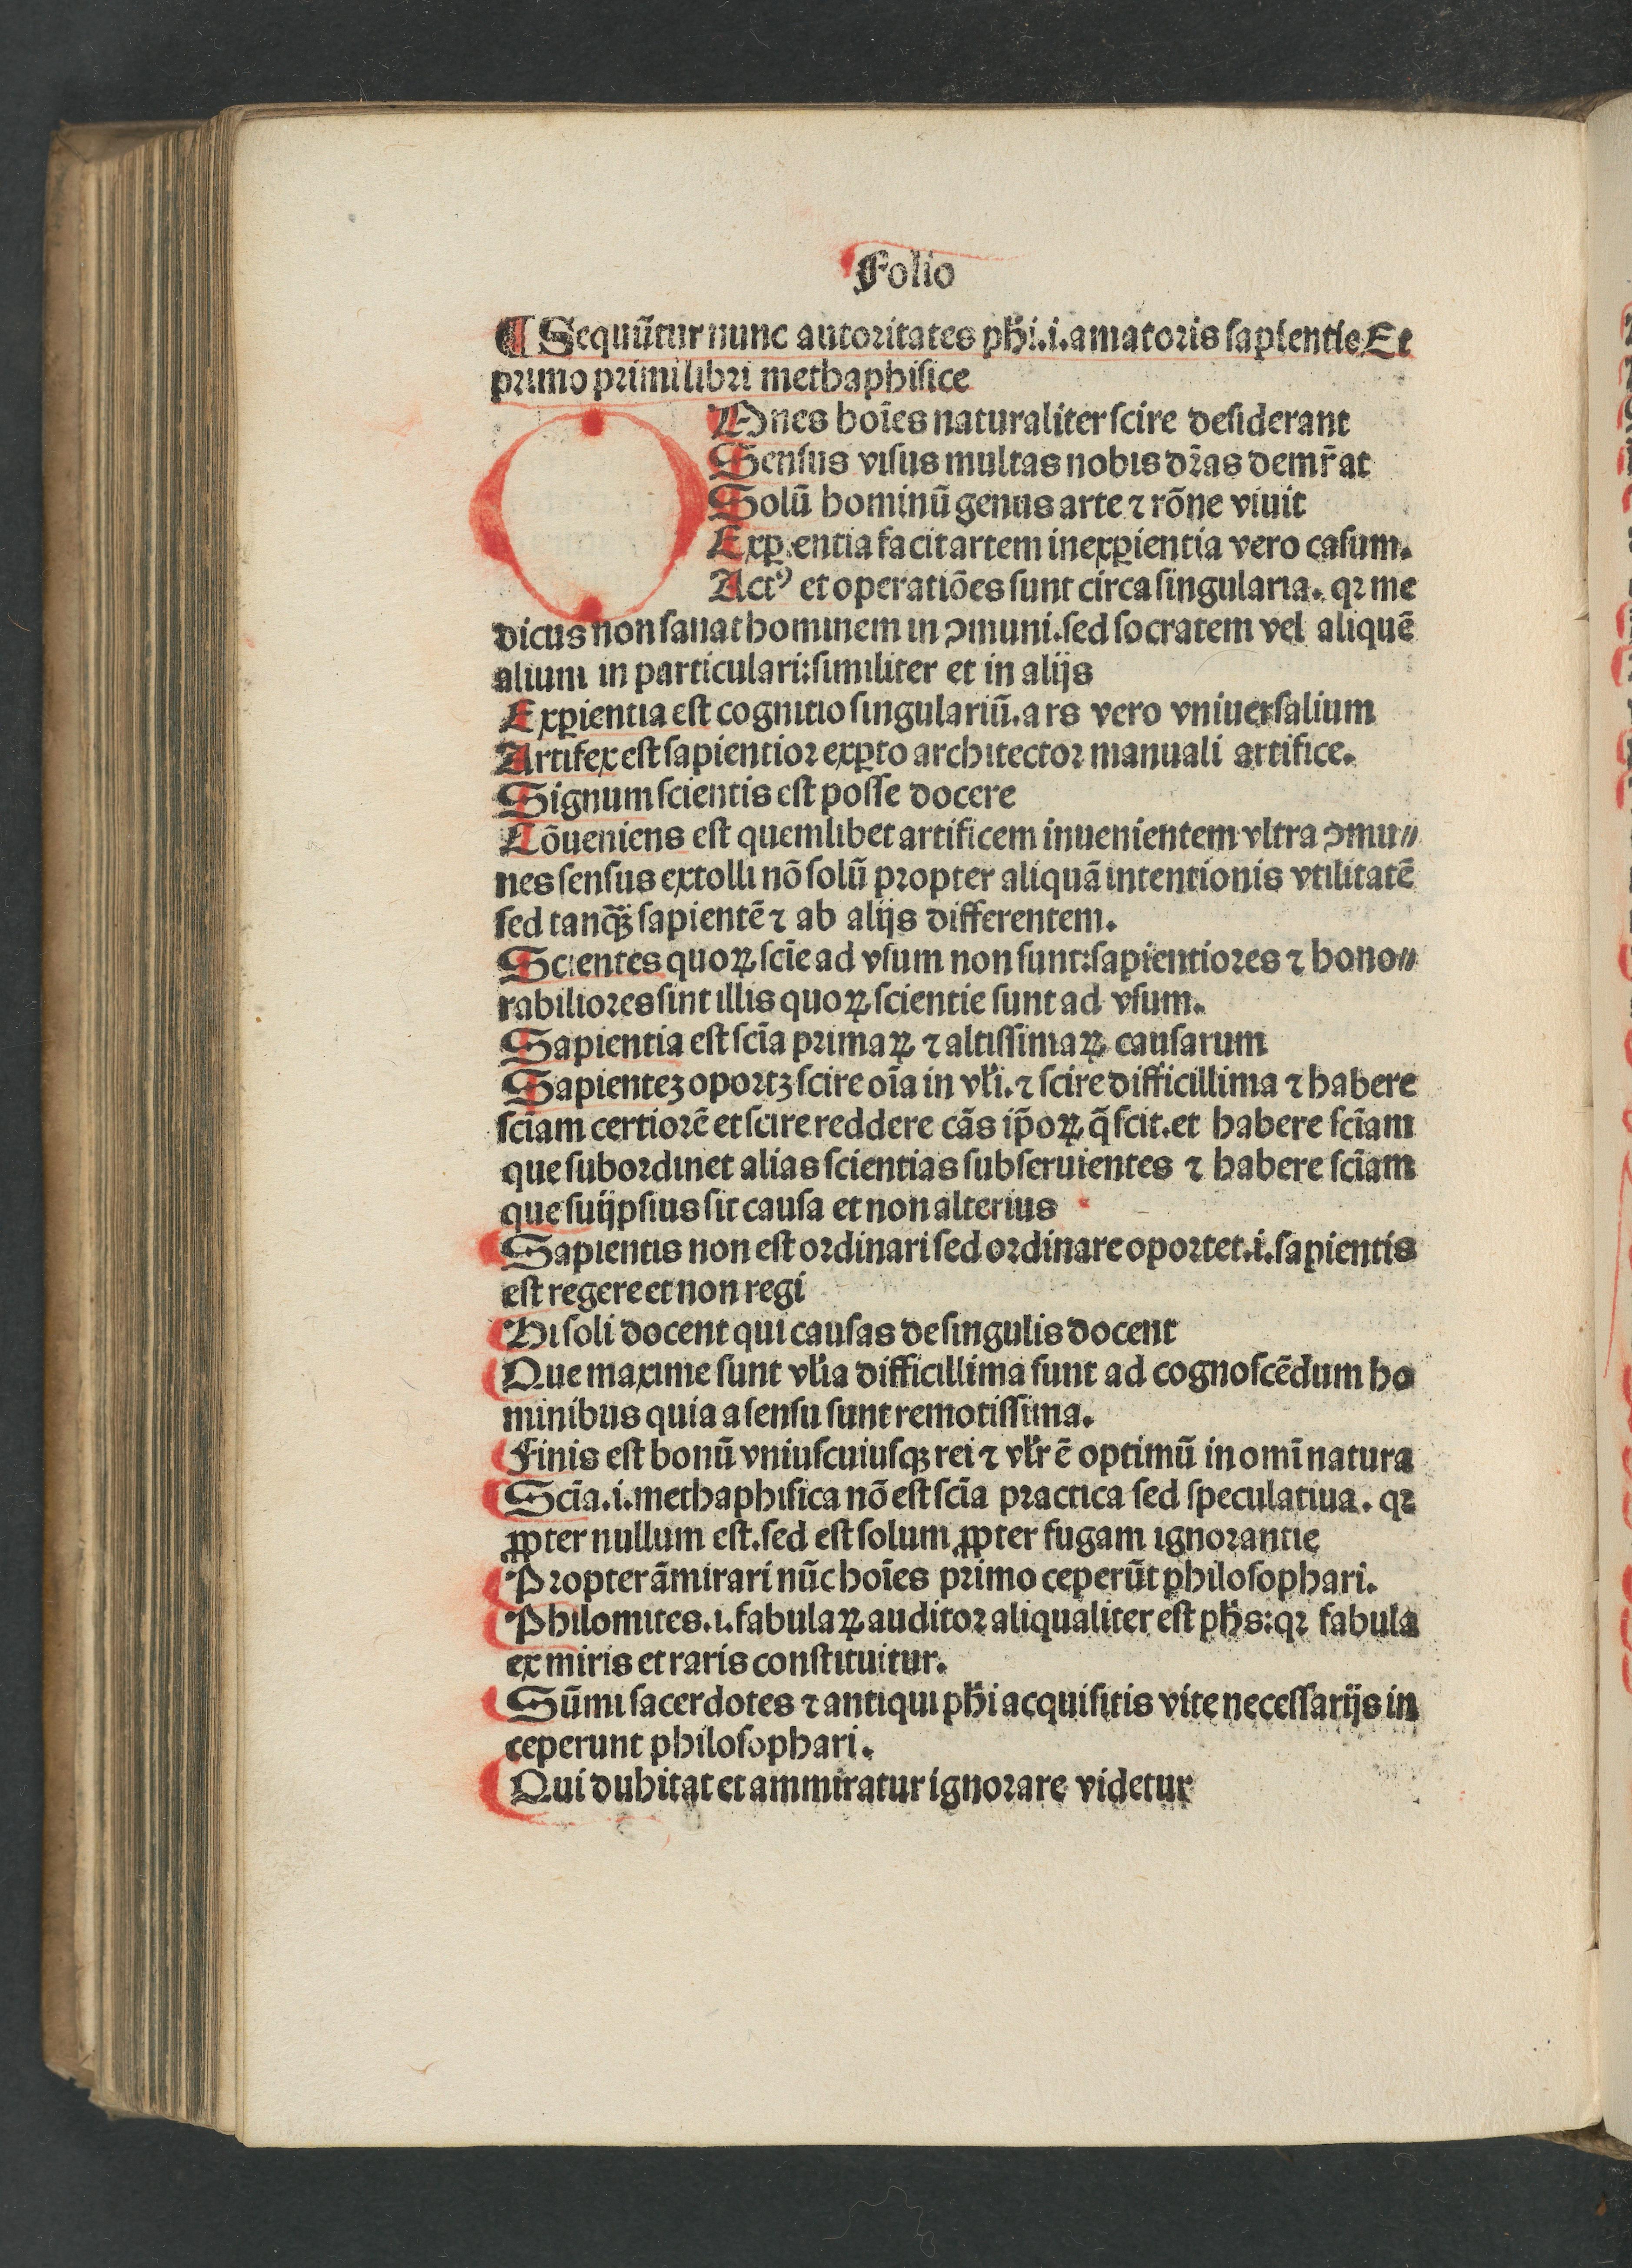 Folio
¶ Sequūtur nunc autoritates ph̄i.i.amatoris sapientie Et
primo primi libri methaphisice
OMnes hoīes naturaliter scire desiderant
Sensus visus multas nobis dr̄as demr̄at
Solū hominū genus arte ⁊ rōne viuit
Exꝑientia facit artem inexꝑientia vero casum.
Actꝰ et operatiōes sunt circa singularia. qꝛ me
dicus non sanat hominem in ꝯmuni.sed socratem vel aliquē
alium in particulari:similiter et in alijs
Exꝑientia est cognitio singulariū.ars vero vniuersalium
Artifex est sapientior exꝑto architector manuali artifice.
Signum scientis est posse docere
Cōueniens est quemlibet artificem inuenientem vltra ꝯmu⸗
nes sensus extolli nō solū propter aliquā intentionis vtilitatē
sed tanꝙ̄ sapientē ⁊ ab alijs differentem.
Scientes quoꝝ scīe ad vsum non sunt:sapientiores ⁊ hono⸗
rabiliores sint illis quoꝝ scientie sunt ad vsum.
Sapientia est scīa primaꝝ ⁊ altissimaꝝ causarum
Sapienteꝫ oportꝫ scire oīa in vl̄i.⁊ scire difficillima ⁊ habere
scīam certiorē et scire reddere cās ip̄oꝝ q̄ scit.et habere scīam
que subordinet alias scientias subseruientes ⁊ habere scīam
que suijpsius sit causa et non alterius
Sapientis non est ordinari sed ordinare oportet.i.sapientis
est regere et non regi
Hi soli docent qui causas de singulis docent
Que maxime sunt vl̄ia difficillima sunt ad cognoscēdum ho
minibus quia a sensu sunt remotissima.
Finis est bonū vniuscuiusqꝫ rei ⁊ vl̄r ē optimū in omī natura
Scīa.i.methaphisica nō est scīa practica sed speculatiua. qꝛ
ꝓpter nullum est.sed est solum ꝓpter fugam ignorantie
Propter āmirari nūc hoīes primo ceperūt philosophari.
Philomites.i.fabulaꝝ auditor aliqualiter est ph̄s:qꝛ fabula
ex miris et raris constituitur.
Sūmi sacerdotes ⁊ antiqui ph̄i acquisitis vite necessarijs in
ceperunt philosophari.
Qui dubitat et ammiratur ignorare videtur